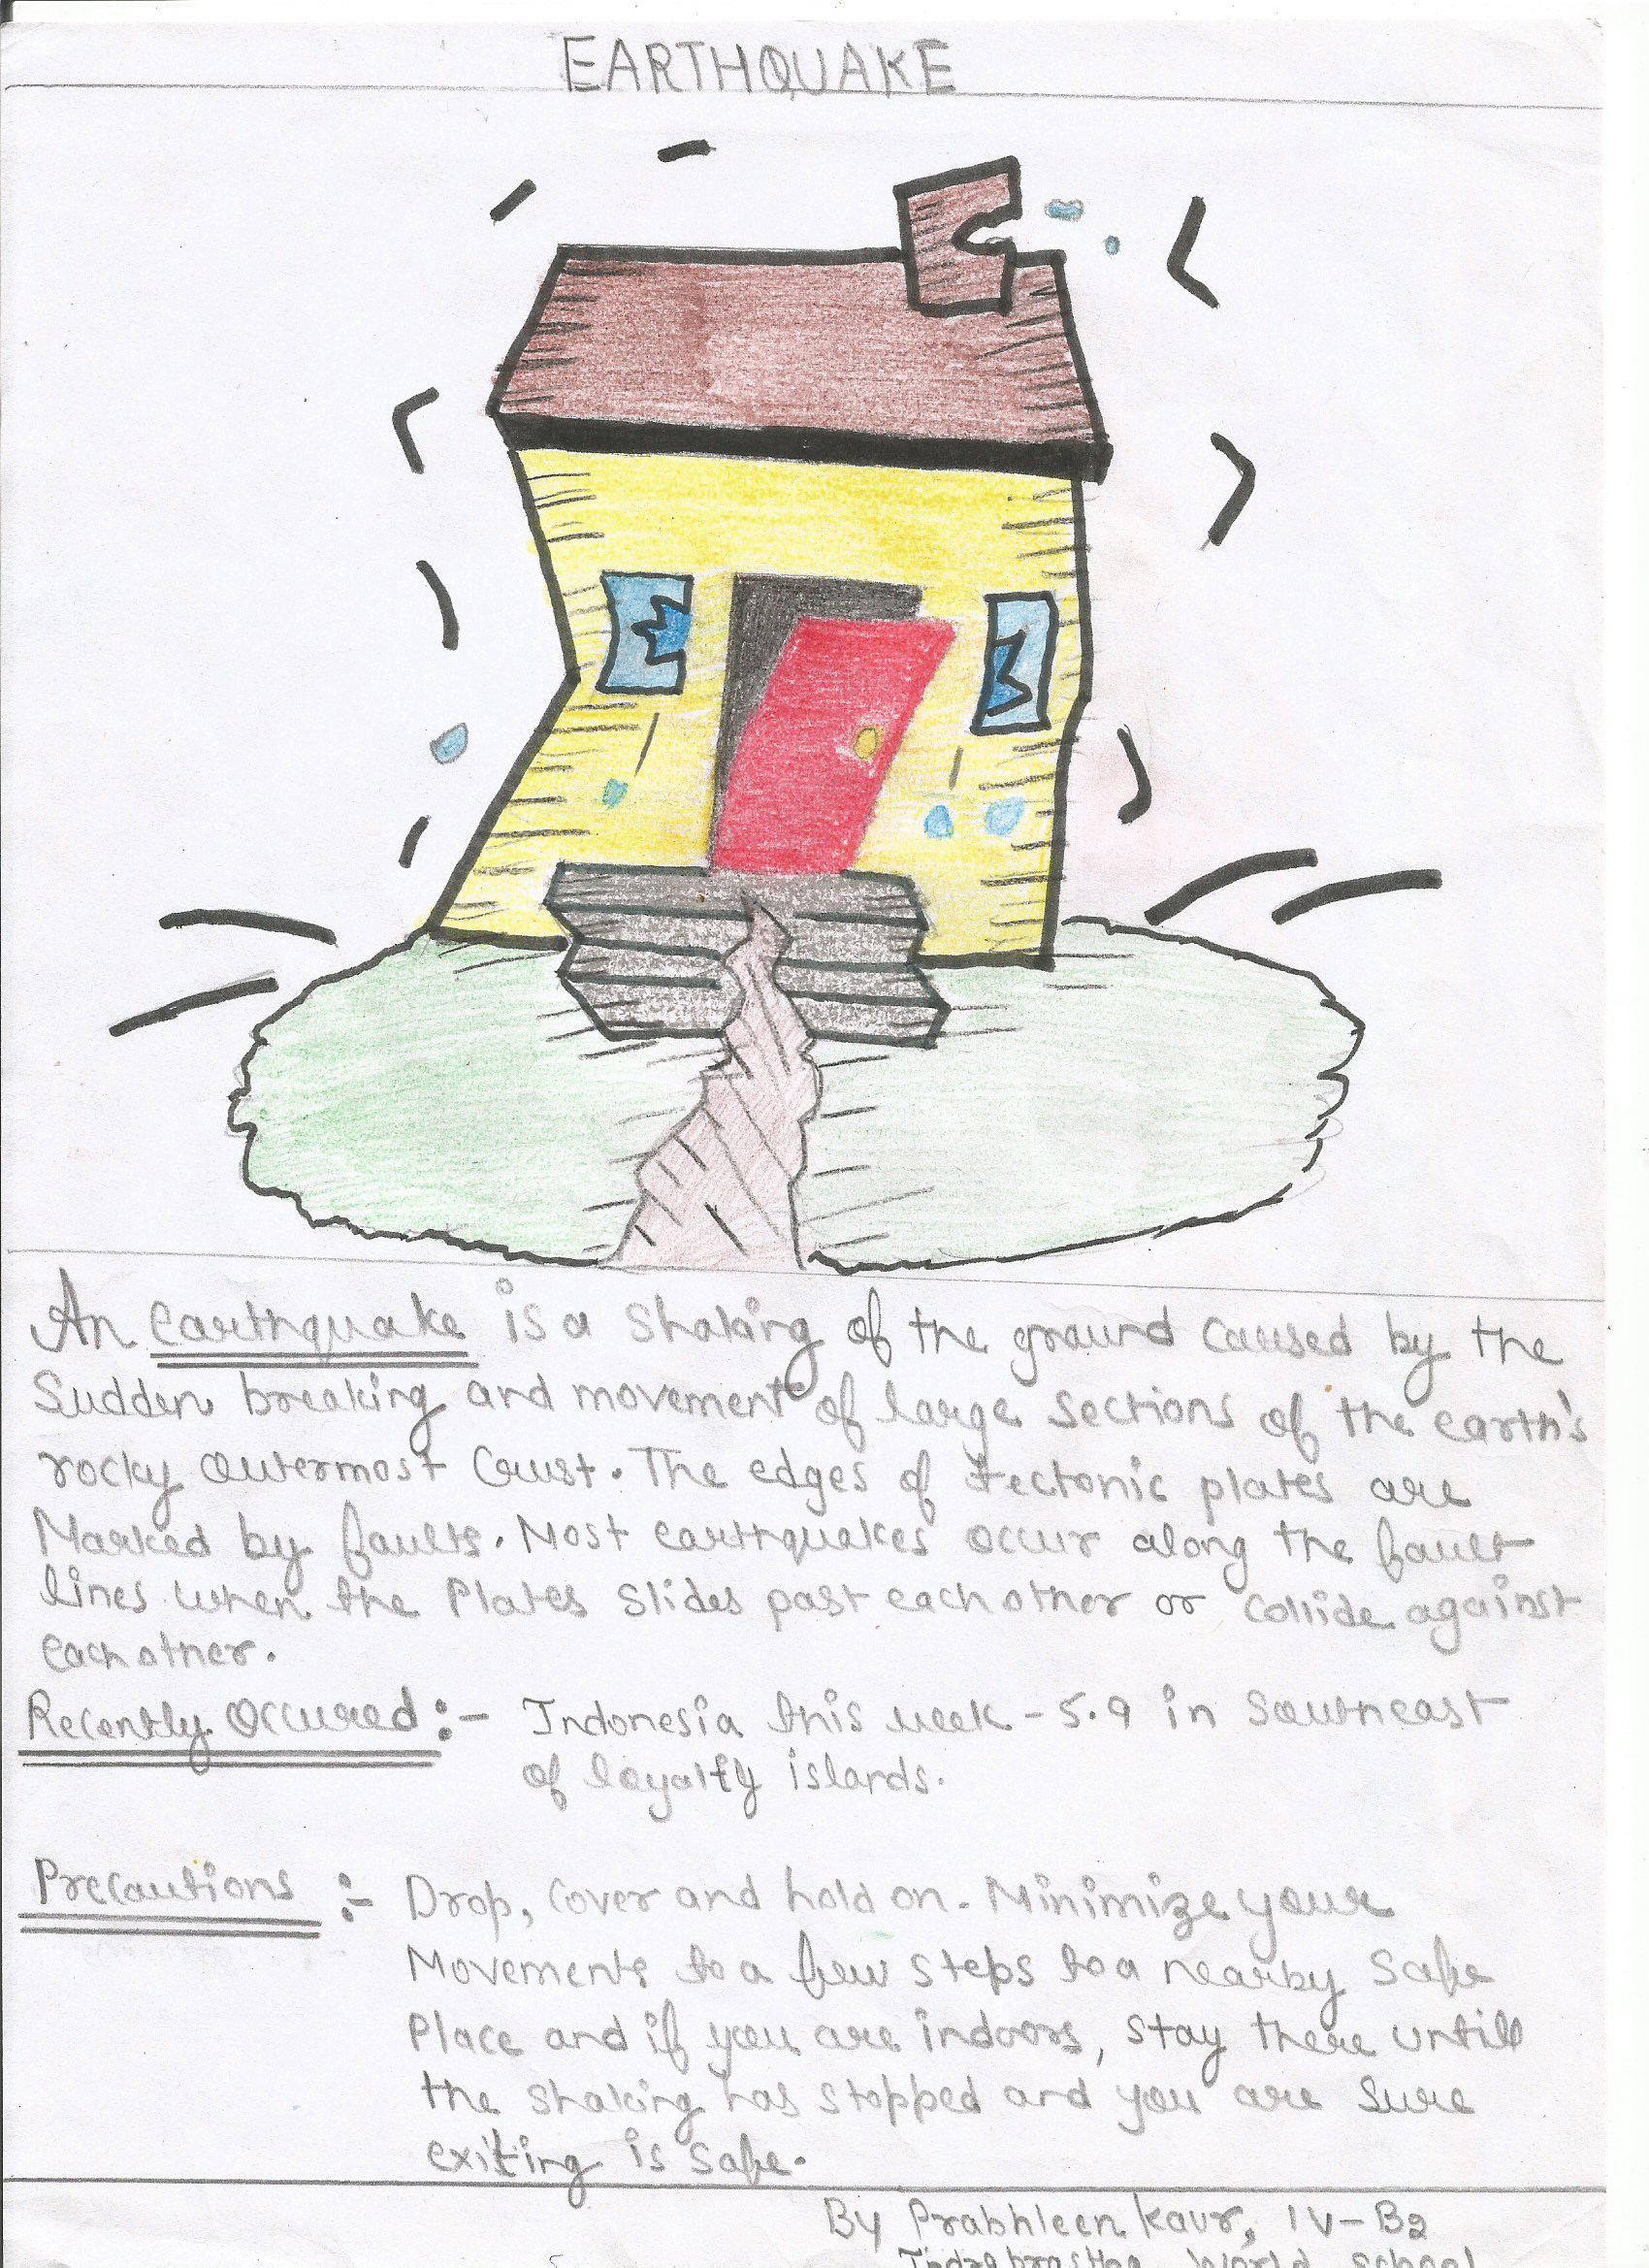 EARTHQUAKE
An earthquake is a shaking of the ground caused by the
Sudden breaking and movement of large sections of the earth's
rocky outermost Crust. The edges of tectonic plates are
Marked by faults. Most earthquakes occur along the fault
lines when the Plates slides past each other or collide against
each other.
Recently Occured :- Indonesia this week - 5.9 in Southeast
of loyalty islands.
Precautions :- Drop, Cover and hold on. Minimize your
Movements to a few steps to a nearby safe
Place and if you are indoors, stay there untill
the shaking has stopped and you are Sure
exiting is safe.
By Prabhleen Kaur, IV-B2
World School